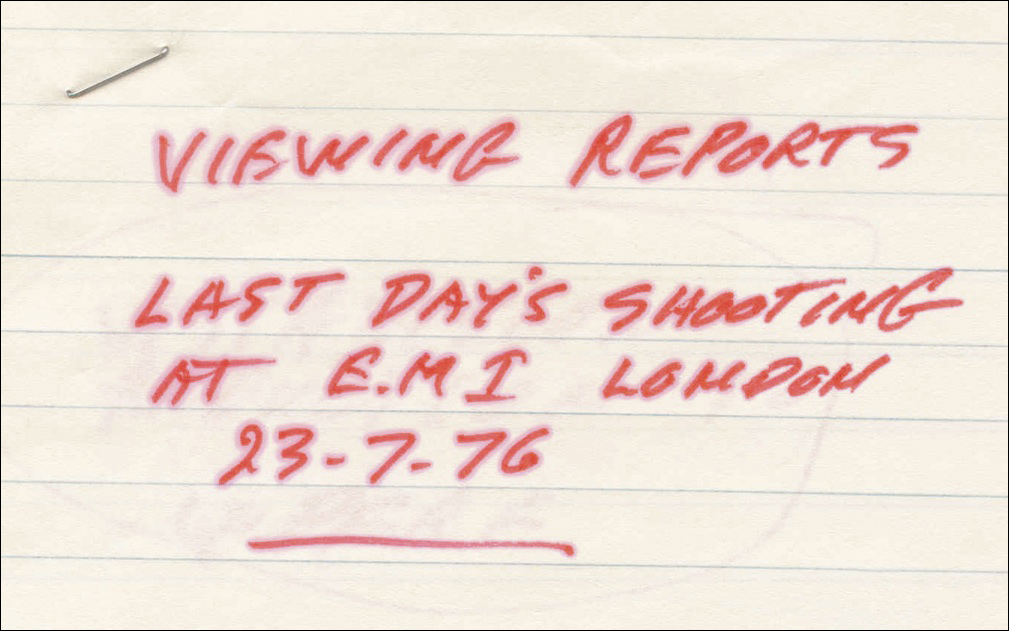 VIEWING REPORTS
LAST DAY'S SHOOTING
AT E.M I LONDON
23-7-76